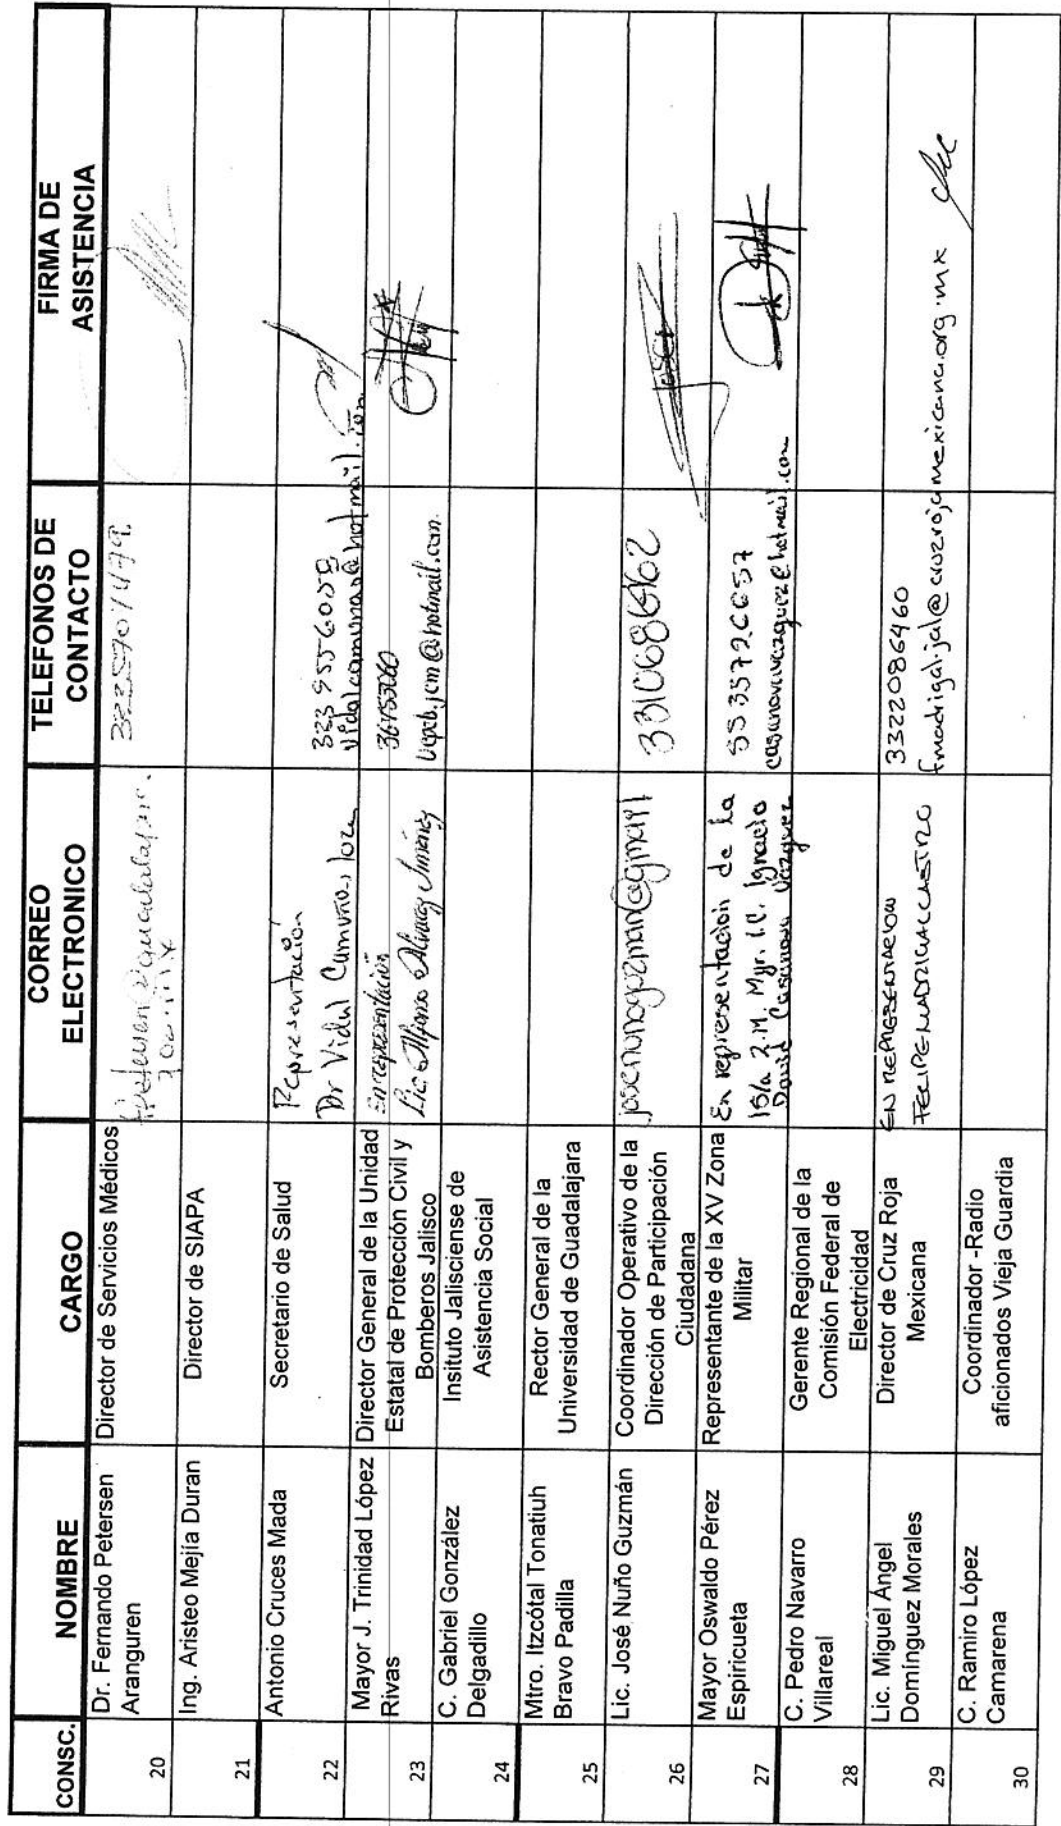 CONSC.
NOMBRE
CARGO
CORREO
ELECTRONICO
TELEFONOS DE
CONTACTO
FIRMA DE
ASISTENCIA
20
Dr. Fernando Petersen
Aranguren
Director de Servicios Médicos
21
Ing. Aristeo Mejía Duran
Director de SIAPA
22
Antonio Cruces Mada
Secretario de Salud
Representación
Dr Vidal
323 9556058
23
Mayor J. Trinidad López
Rivas
Director General de la Unidad
Estatal de Protección Civil y
Bomberos Jalisco
En representación
Lic. Alfonso Alvarez Jiménez
24
C. Gabriel González
Delgadillo
Insituto Jalisciense de
Asistencia Social
25
Mtro. Itzcótal Tonatiuh
Bravo Padilla
Rector General de la
Universidad de Guadalajara
26
Lic. José Nuño Guzmán
Coordinador Operativo de la
Dirección de Participación
Ciudadana
27
Mayor Oswaldo Pérez
Espiricueta
Representante de la XV Zona
Militar
En representación de la
15/a Z.M. Myr. I.C. Ignacio
David Casanova Vázquez
55 35726657
casanovavazquez@hotmail.com
28
C. Pedro Navarro
Villareal
Gerente Regional de la
Comisión Federal de
Electricidad
29
Lic. Miguel Ángel
Domínguez Morales
Director de Cruz Roja
Mexicana
EN REPRESENTACION
FELIPE MADRIGAL CASTRO
3322086460
fmadrigal.jal@cruzrojamexicana.org.mx
30
C. Ramiro López
Camarena
Coordinador -Radio
aficionados Vieja Guardia